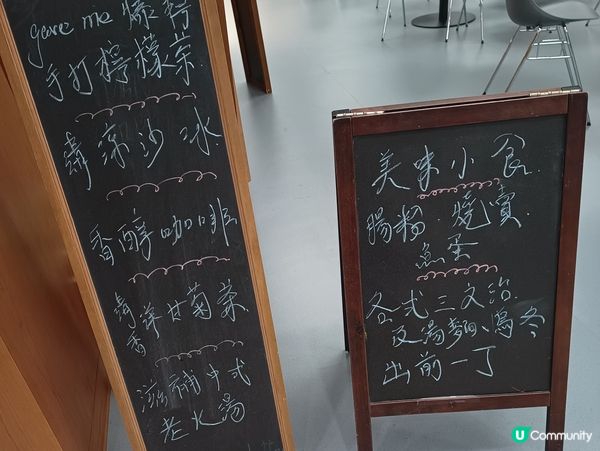 gave me 爆檸
手打檸檬茶
清涼沙冰
香醇咖啡
清洋甘菊茶
香
滋補中式
老火湯
美味小食
腸粉.燒賣
魚蛋
各式三文治
及湯麵、烏冬
出前一丁
U Community